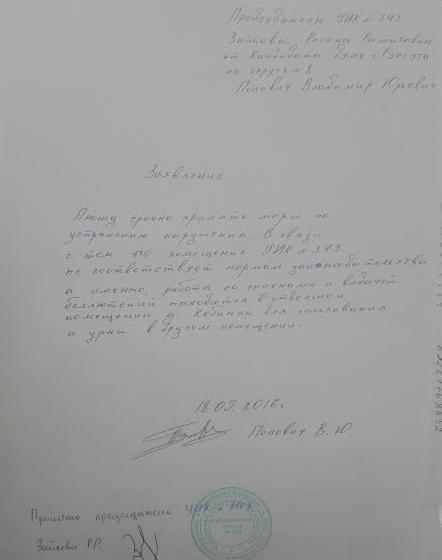 Председателю УИК № 343
Зайковой Регине Рашитовне
от Кандидата Думу г. Сургута
по округу № 8
Попович Владимир Юрьевич
Заявление.
Прошу срочно принять меры по
устранению нарушения. В связи
с тем что помещение УИК № 343
не соответствует нормам законодательства
а именно, работа со списками и выдачей
бюллетений находится в отвельном
помещении а Кабинки для голосования
и урны в другом помещении.
18.09.2016г
Попович В. Ю.
Принято председатель УИК № 343
Зайкова Р.Р.